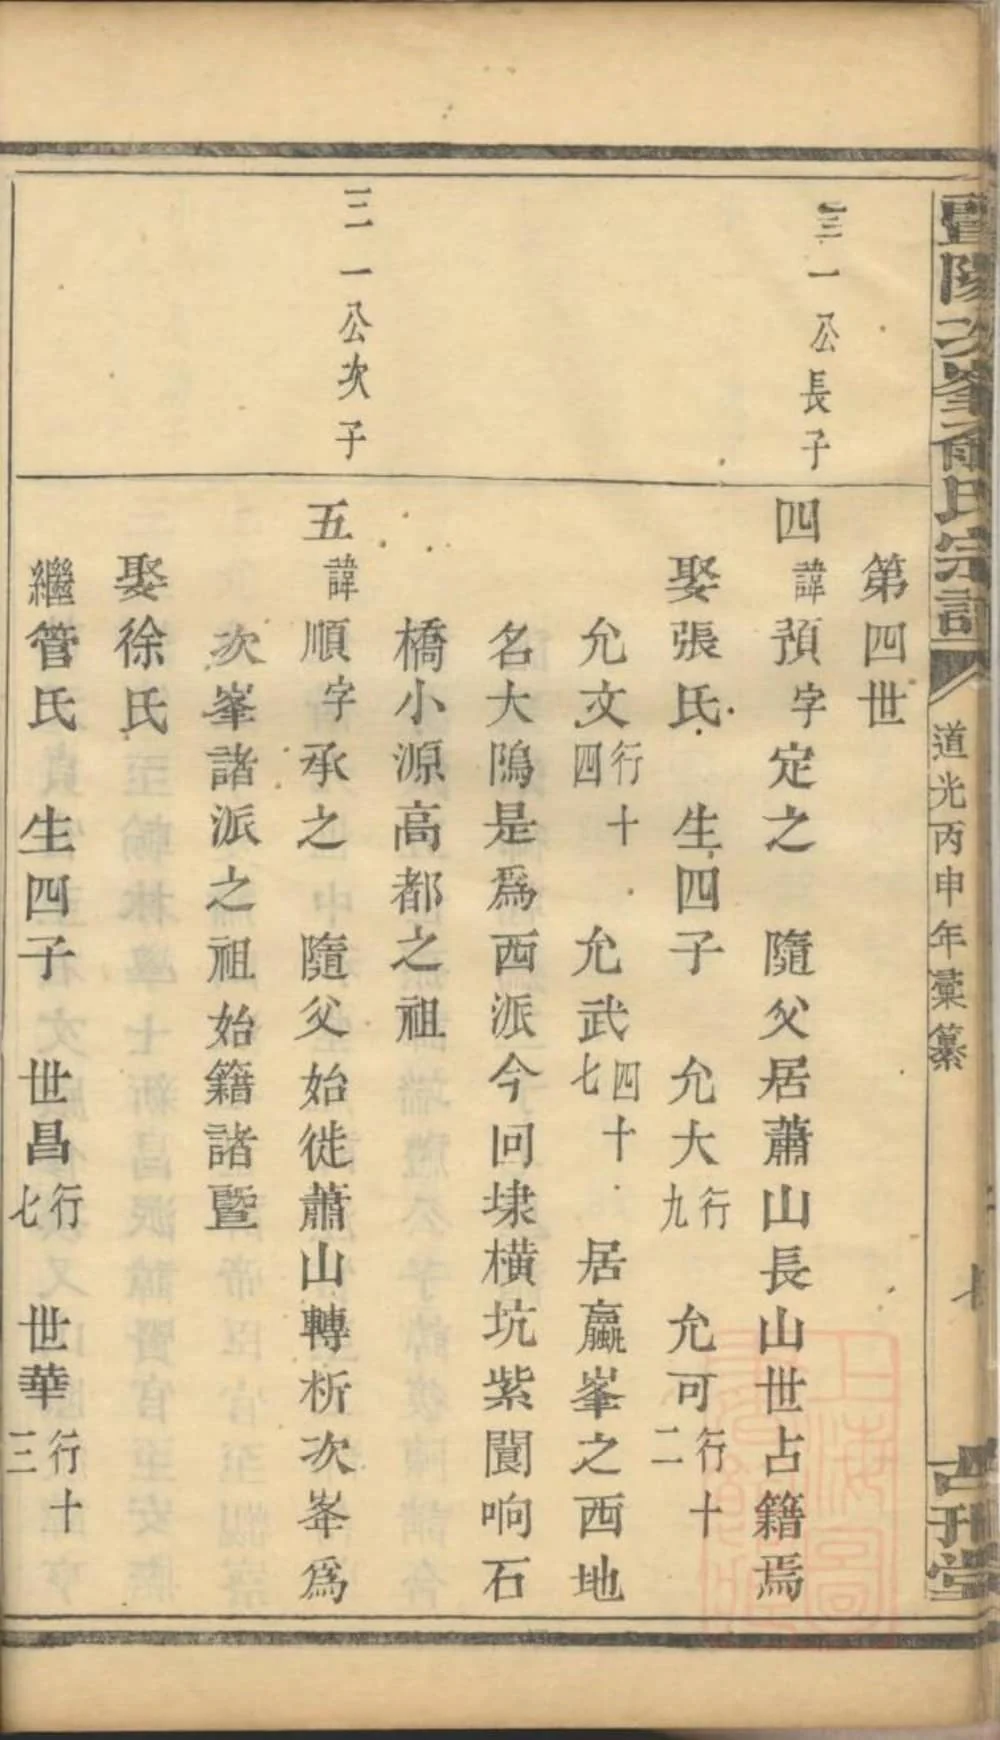 暨陽次峯俞氏宗譜
道光丙申年彙纂
第四世
三一公長子
四諱預字定之 隨父居蕭山長山世占籍焉
娶張氏 生四子 允大行九 允可行十二
允文行十四 允武四十七 居嬴峯之西地
名大隖是爲西派今回埭橫坑紫閬响石
橋小源高都之祖
三一公次子
五諱順字承之 隨父始徙蕭山轉析次峯爲
次峯諸派之祖始籍諸暨
娶徐氏
繼管氏 生四子 世昌行七 世華行十三